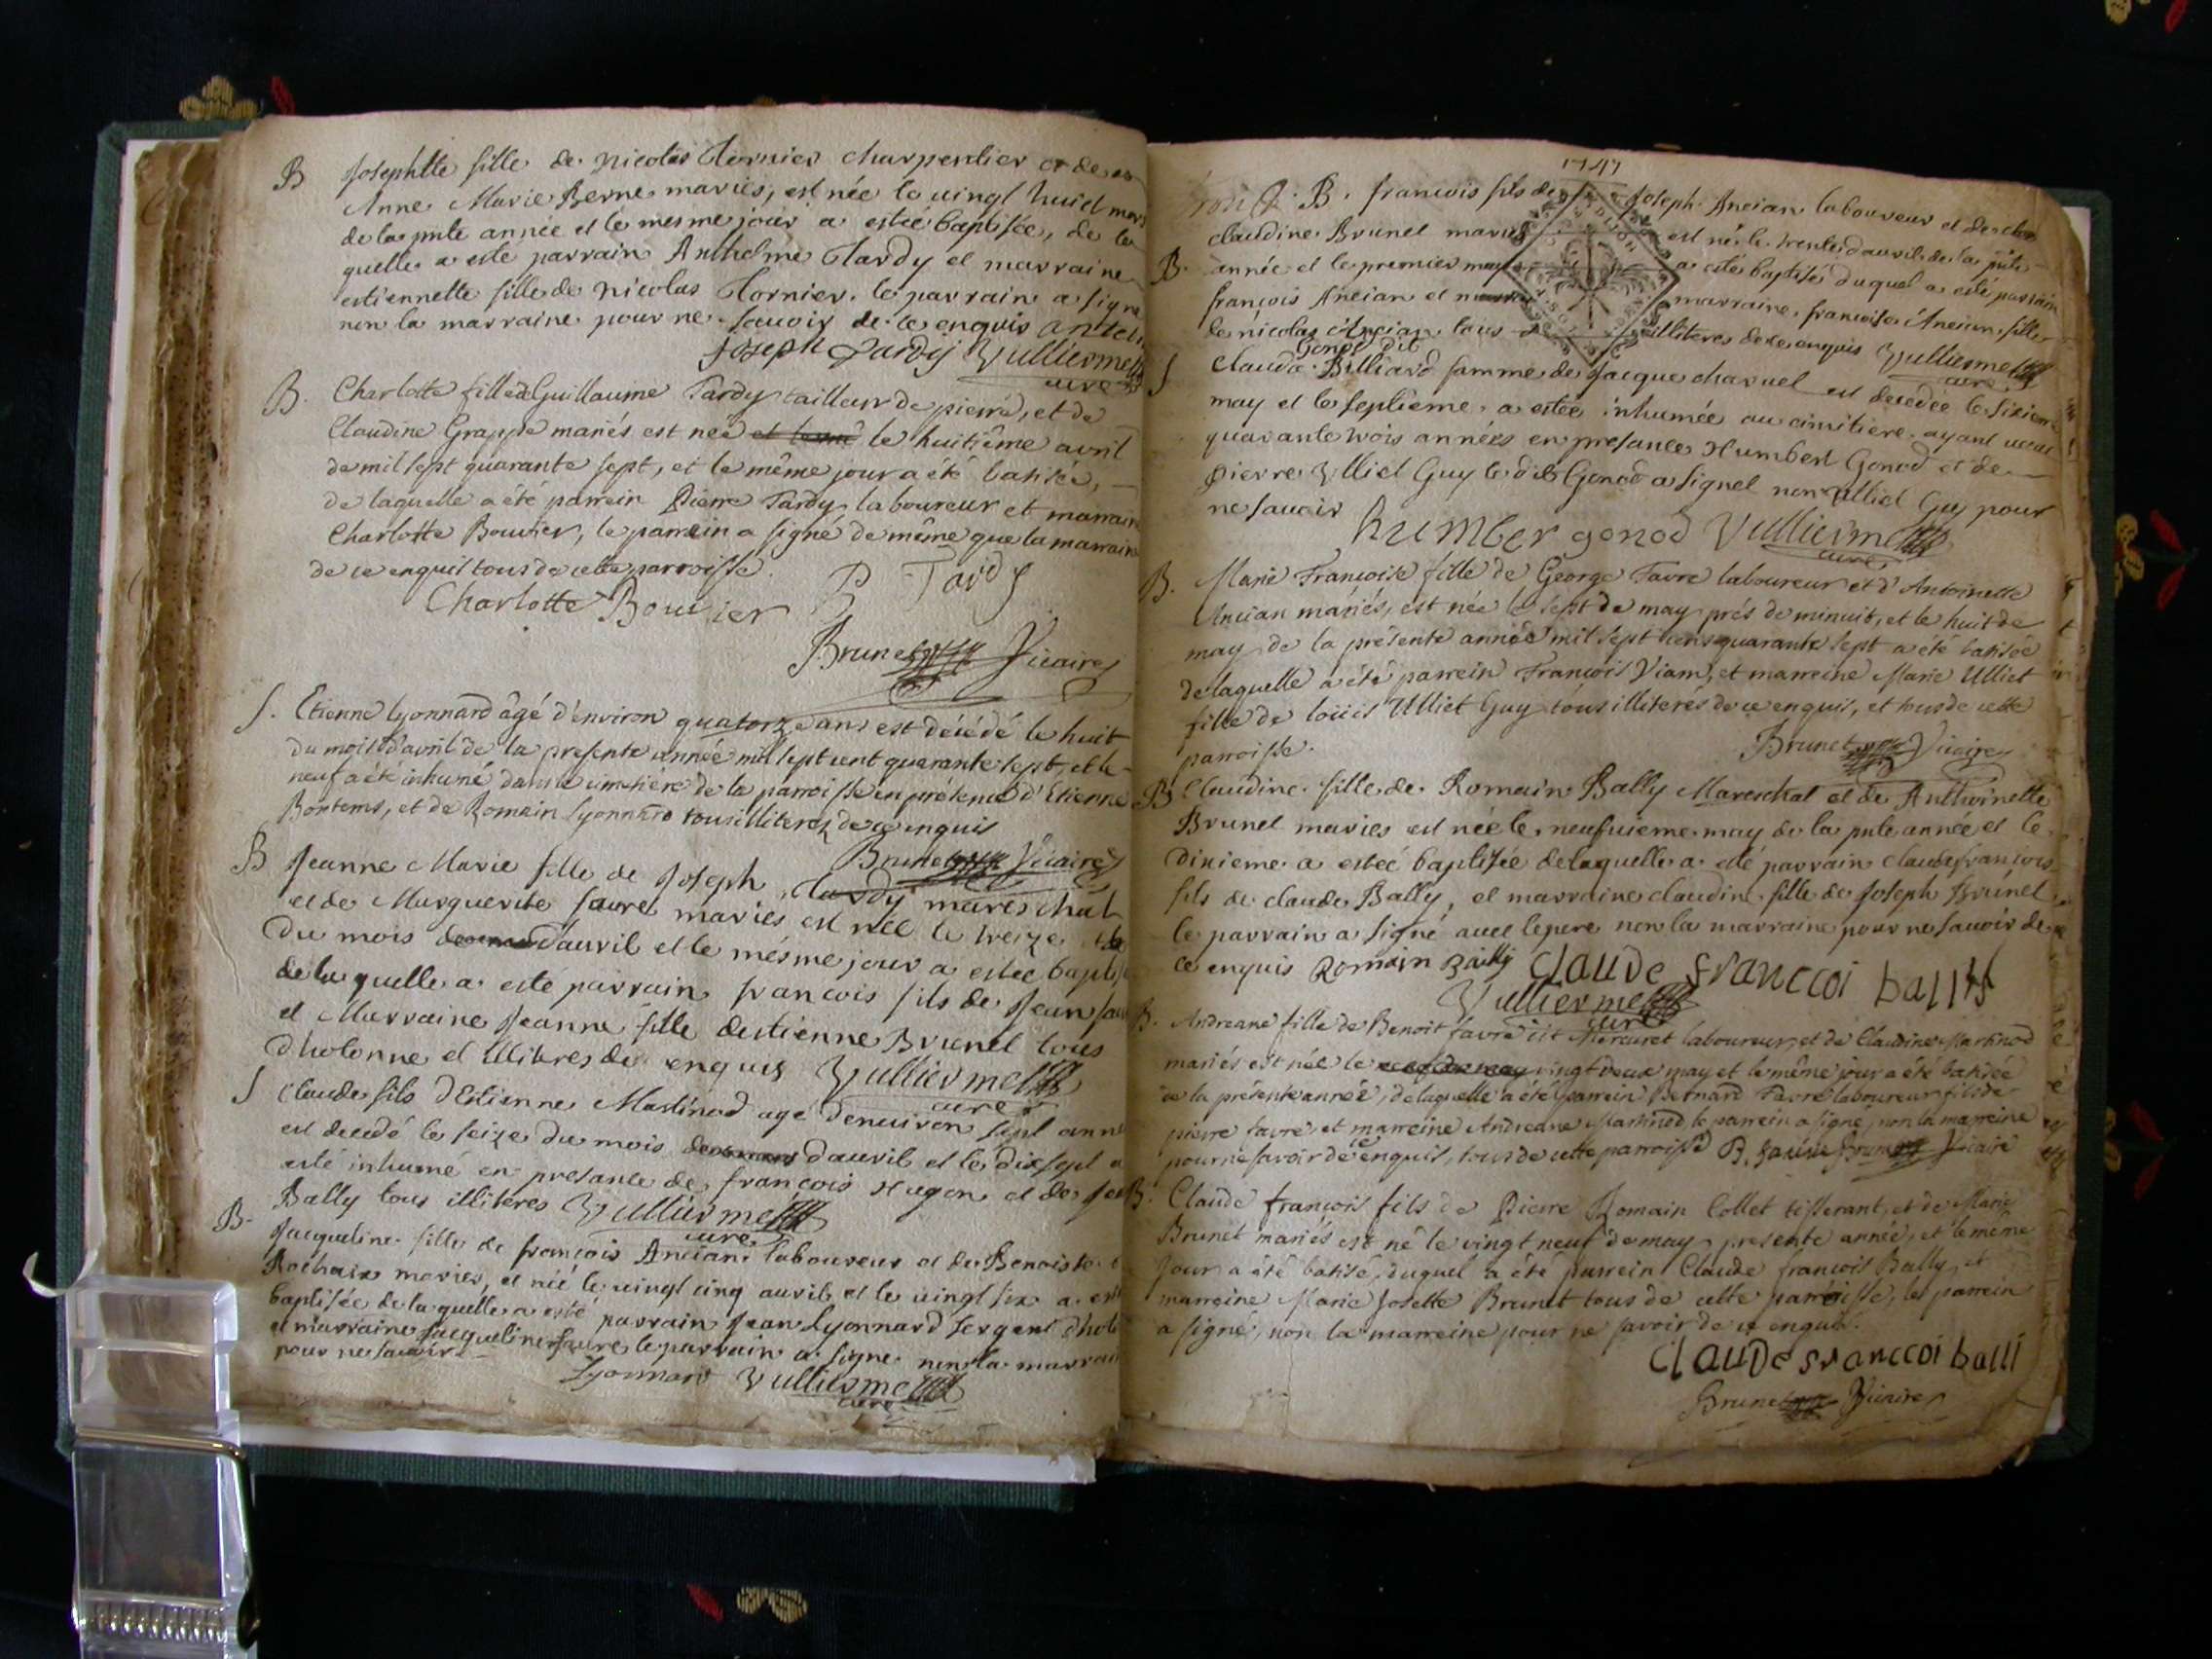 B Josephtte fille de Nicolas Tornier charpentier et de
Anne Marie Berne mariés, est née le vingt huict mars
de la pnte année et le mesme jour a estée baptisée, de la
quelle a esté parrain Anthelme Tardy et marraine
estiennette fille de Nicolas Tornier. le parrain a signé
non la marraine pour ne sauoir de ce enquis
Joseph Tardij Vulliermet
curé
B. Charlotte fille de Guillaume Tardy tailleur de pierre, et de
Claudine Grappe mariés est née le huitième avril
de mil sept quarante sept, et le même jour a été batisée,
de laquelle a été parrein Pierre Tardy laboureur et marraine
Charlotte Bouvier, le parrein a signé de même que la marraine
de ce enquis tous de cette parroisse.
Charlotte Bouvier P Tardy
Brunet Vicaire
S. Etienne Lyonnard âgé d'environ quatorze ans est décédé le huit
du mois d'avril de la presente année mil sept cent quarante sept, et le
neuf a été inhumé dans le cimetière de la parroisse en présence d'Etienne
Bontems, et de Romain Lyonnard tous illiterez de ce enquis
Brunet Vicaire
B Jeanne Marie fille de Joseph Tardy mareschal
et de Marguerite faure mariés est née le treize
du mois d'auril et le mésme jour a estée baptisée
de la quelle a esté parrain francois fils de Jean
et Marraine Jeanne fille destienne Brunet tous
dhotonne et illiteres de enquis Vulliermet
curé
S Claude fils d'Estienne Martinod agé denuiron sept
est decedé le seize du mois d'auril et le dixsept a
esté inhumé en presance de francois Hugon et de
Bally tous illiteres Vulliermet
curé
B. Jacqueline fille de francois Ancian laboureur et de Benoiste
Rochaix mariés, est née le uingt cinq auril et le uingt six a
baptisée de la quelle a esté parrain Jean Lyonnard sergent
et marraine Jacqueline faure le parrain a signé non la marraine
pour ne sauoir
Lyonnard Vulliermet
curé
1747
B. francois fils de Joseph Ancian laboureur et de
claudine Brunet mariés est né le trente d'auril de la pnte
B. année et le premier may a esté baptisé duquel a esté parrain
francois Ancian et marraine francoise Ancian fille
de nicolas Ancian tous illiteres de ce enquis Vulliermet
curé
Gonod dit
S Clauda Billiard famme de Jacque charuet est decedée le sixieme
may et le septieme a estée inhumée au cimitiere ayant uecu
quarante trois années en presance Humbert Gonod et de
Pierre Ulliet Guy le dit Gonod a signet non Ulliet Guy pour
ne sauoir
humber gonod Vulliermet
curé
B. Marie Françoise fille de George Favre laboureur et d'Antoinette
Ancian mariés, est née le sept de may près de minuit, et le huit de
may de la présente année mil sept cens quarante sept a été batisée
de laquelle a été parrein François Viam, et marreine Marie Ulliet
fille de loüis Ulliet Guy tous illiterés de ce enquis, et tous de cette
parroisse.
Brunet Vicaire
B Claudine fille de Romain Bally Mareschal et de Anthoinette
Brunet mariés est née le neufuieme may de la pnte année et le
dixieme a estée baptisée de laquelle a esté parrain claude francois
fils de claude Bally, et marraine claudine fille de Joseph Brunet
le parrain a signé auec le pere non la marraine pour ne sauoir de
ce enquis Romain Bailly CLAUDE franccoi balli
Vulliermet
curé
B. Andreane fille de Benoit favre dit Mercuret laboureur, et de Claudine Martinod
mariés est née le vingt deux may et le même jour a été batisée
de la présente année, de laquelle a été parrein Bernard Favre laboureur fils de
pierre favre, et marreine Andreane Martinod le parrein a signé, non la marreine
pour ne savoir de ce enquis, tous de cette parroisse B. favre Brunet Vicaire
B. Claude françois fils de Pierre Romain Collet tisserant, et de Marie
Brunet mariés est né le vingt neuf de may presente année, et le même
jour a été batisé, duquel a été parrein Claude francois Bally, et
marreine Marie Josette Brunet tous de cette parroisse, le parrein
a signé, non la marreine pour ne savoir de ce enquis.
CLAUDE franccoi balli
Brunet Vicaire